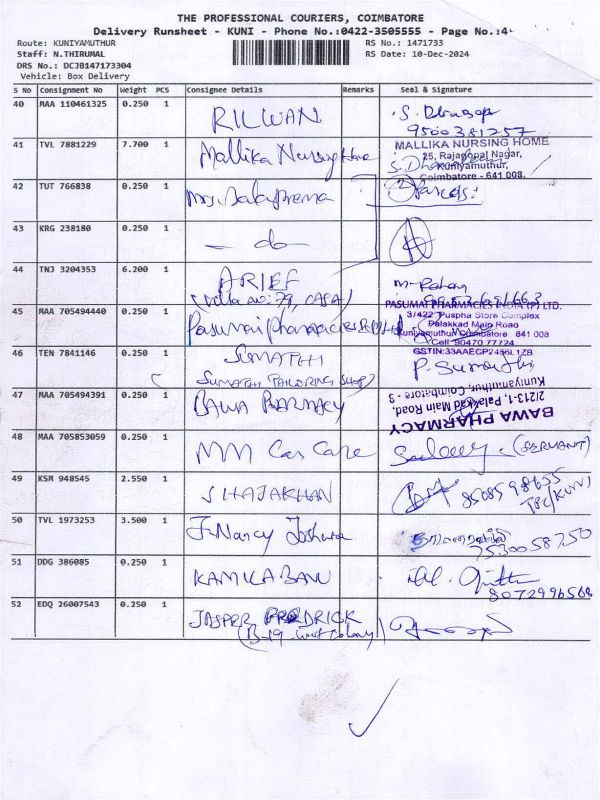 THE PROFESSIONAL COURIERS, COIMBATORE
Delivery Runsheet - KUNI - Phone No.:0422-3505555 - Page No.:4
Route: KUNIYAMUTHUR
RS No.: 1471733
Staff: N.THIRUMAL
RS Date: 10-Dec-2024
DRS No.: DCJB147173304
Vehicle: Box Delivery
S No Consignment No Weight PCS Consignee Details Remarks Seal & Signature
40 MAA 110461325 0.250 1 RILWAN S.
9500381257
41 TVL 7881229 7.700 1 Mallika Nursing Home
MALLIKA NURSING HOME
25, Rajagopal Nagar,
Kuniyamuthur,
Coimbatore - 641 008.
42 TUT 766838 0.250 1 Mrs. Balaprema
43 KRG 238180 0.250 1 - do -
44 TNJ 3204353 6.200 1 ARIEF
(Villa no: 79, CASA)
45 MAA 705494440 0.250 1
PASUMAI PHARMACIES INDIA (P) LTD.
3/422 Puspha Store Complex
Palakkad Main Road
Kuniyamuthur, Coimbatore 641 008
Cell 90470 77724
GSTIN:33AAECP2456L1ZB
46 TEN 7841146 0.250 1 SUMATHI P. Sumathi
(SUMATHI TAILORING SHOP)
47 MAA 705494391 0.250 1 BAWA PHARMACY
BAWA PHARMACY
21213-1, Palakkad Main Road,
Kuniyamuthur, Coimbatore - 3
48 MAA 705853059 0.250 1 MM Car Care (SERVANT)
49 KSM 948545 2.550 1 SHAJAKHAN 8508598655
50 TVL 1973253 3.500 1 Jr. Nancy Joshua
7530058750
51 DDG 386085 0.250 1 KAMILA BANU
8072996568
52 EDQ 26007543 0.250 1 JASPER FREDRICK
(B-19, west colony)